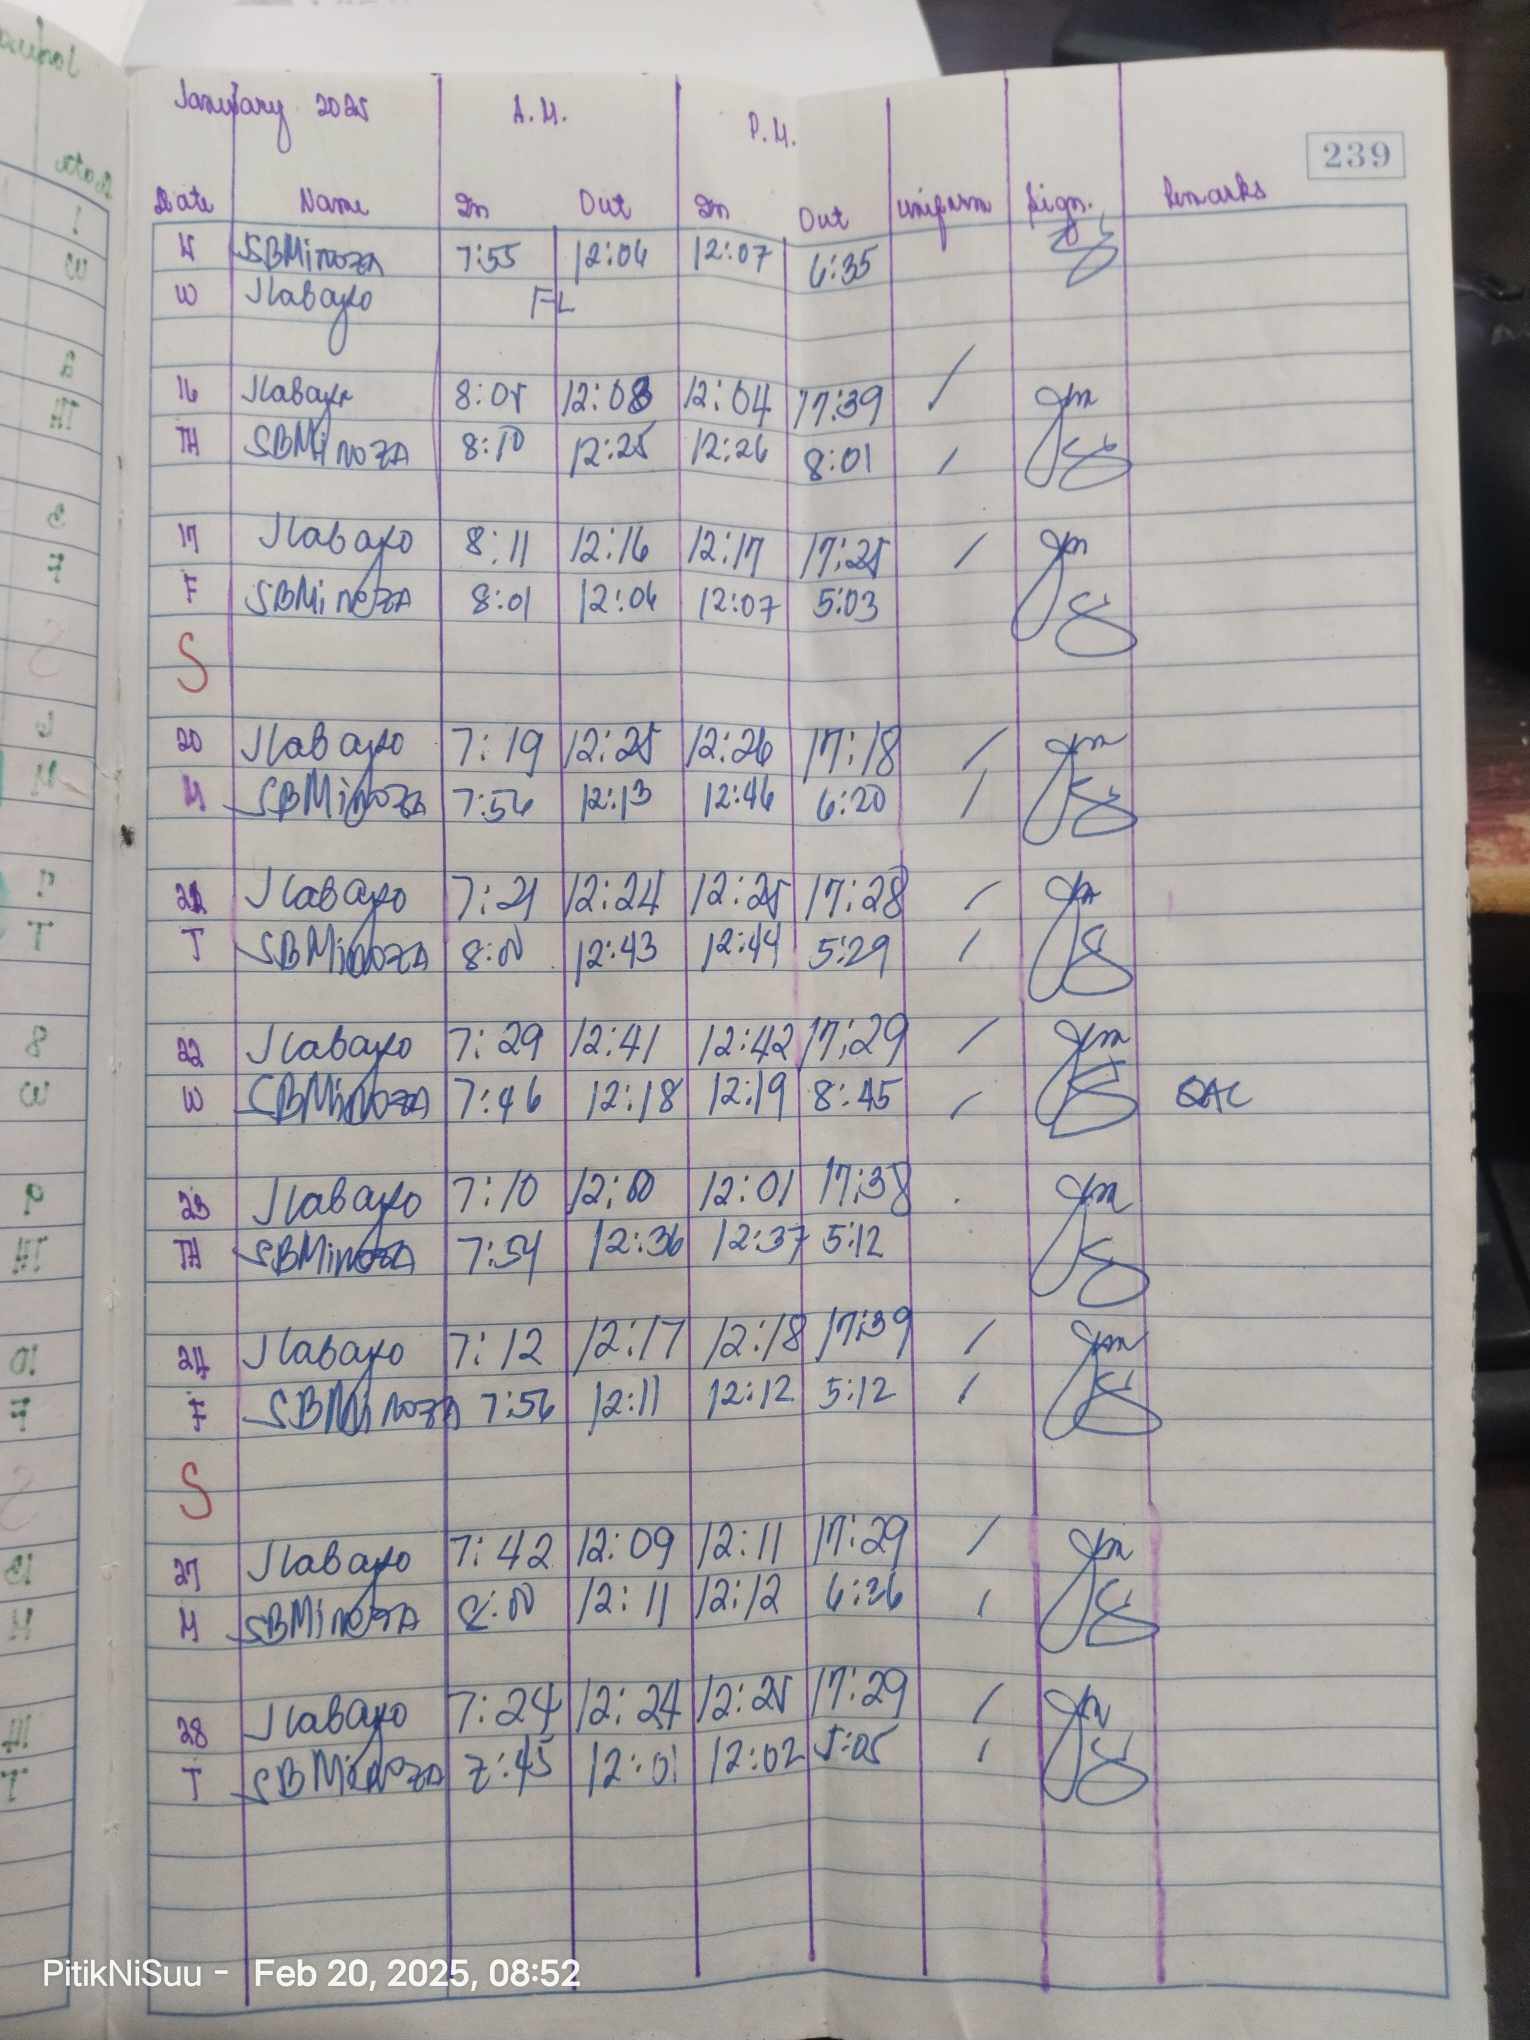 January 2025 A.M. P.M.
239
Date Name In Out In Out Uniform Sign. Remarks
15 SBMinoza 7:55 12:06 12:07 6:35
W Jlabayo FL
16 Jlabayo 8:05 12:03 12:04 17:39 /
TH SBMinoza 8:10 12:25 12:26 8:01 /
17 Jlabayo 8:11 12:16 12:17 17:25 /
F SBMinoza 8:01 12:06 12:07 5:03
S
20 Jlabayo 7:19 12:25 12:26 17:18 /
M SBMinoza 7:56 12:13 12:46 6:20 /
21 Jlabayo 7:21 12:24 12:25 17:28 /
T SBMinoza 8:00 12:43 12:44 5:29 /
22 Jlabayo 7:29 12:41 12:42 17:29 /
W SBMinoza 7:46 12:18 12:19 8:45 / SAC
23 Jlabayo 7:10 12:00 12:01 17:38
TH SBMinoza 7:54 12:36 12:37 5:12
24 Jlabayo 7:12 12:17 12:18 17:39 /
F SBMinoza 7:56 12:11 12:12 5:12 /
S
27 Jlabayo 7:42 12:09 12:11 17:29 /
M SBMinoza 8:00 12:11 12:12 6:36 /
28 Jlabayo 7:24 12:24 12:25 17:29 /
T SBMinoza 7:45 12:01 12:02 5:05 /
PitikNiSuu - Feb 20, 2025, 08:52